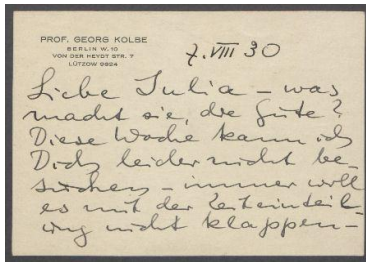 PROF. GEORG KOLBE
BERLIN W. 10
VON DER HEYDT STR. 7
LÜTZOW 9924
7. VIII 30
Liebe Julia – was
macht sie, die Gute?
Diese Woche kann ich
Dich leider nicht be-
suchen – immer will
es mit der Zeiteinteil-
ung nicht klappen –